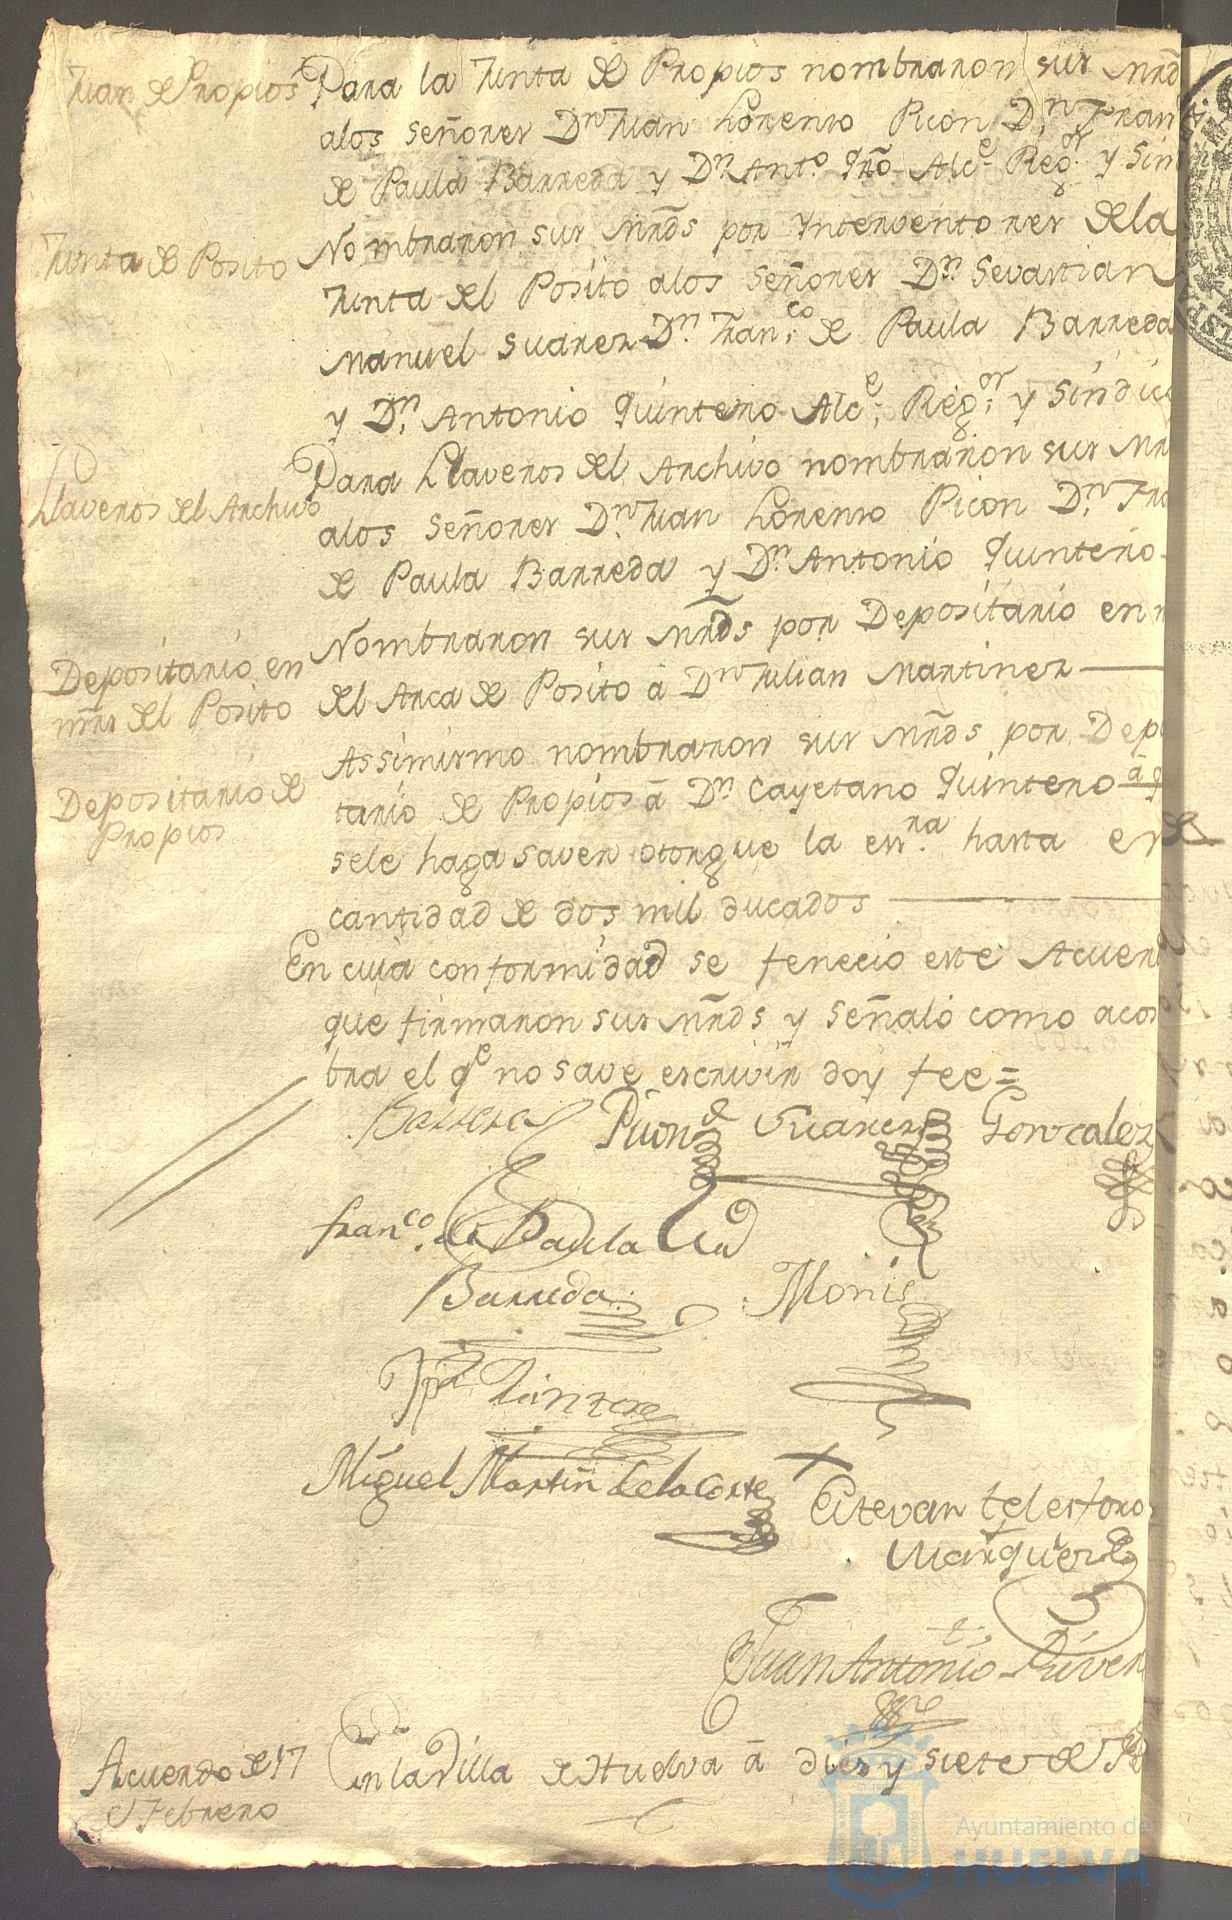 Juan de Propios
Para la Junta de Propios nombraron sus mrds
alos Señores Dn Juan Lorenso Picon Dn Fran
de Paula Barreda y Dn Anto. Qro Alce. Regor. y Sin
Junta de Posito
Nombraron sus mrds por Yntervento res dela
Junta del Posito alos Señores Dn. Sevastian
Manuel Suarez Dn. Franco. de Paula Barreda
y Dn. Antonio Quintero Alce. Regor. y Síndic
Llaveros del Archivo
Para Llaveros del Archivo nombraron sus mr
alos Señores Dn. Juan Lorenso Picon Dn. Fra
de Paula Barreda y Dn. Antonio Quintero
Depositario en
mrs del Posito
Nombraron sus mrds por Depositario en m
del Arca de Posito â Dn Julian Martinez
Depositario de
Propios
Assimismo nombraron sus mrds por Depo
tario de Propios â Dn. Cayetano Quintero â q
sele haga saver otorgue la essra. hasta en
cantidad de dos mil ducados
En cuia conformidad se fenecio este Acuer
que firmaron sus mrds y señaló como acos
bra el qe no save escrivir doy fee =
Barreda Picon Suarez Gonzalez
Franco. de Paula
Barreda Monis
Quintero
Miguel Martin dela Corte
Estevan telesforo
Marquez
Juan Antonio
Acuerdo de 17
de Febrero
En la Villa de Huelva â dies y siete de Fe
Ayuntamiento de
HUELVA